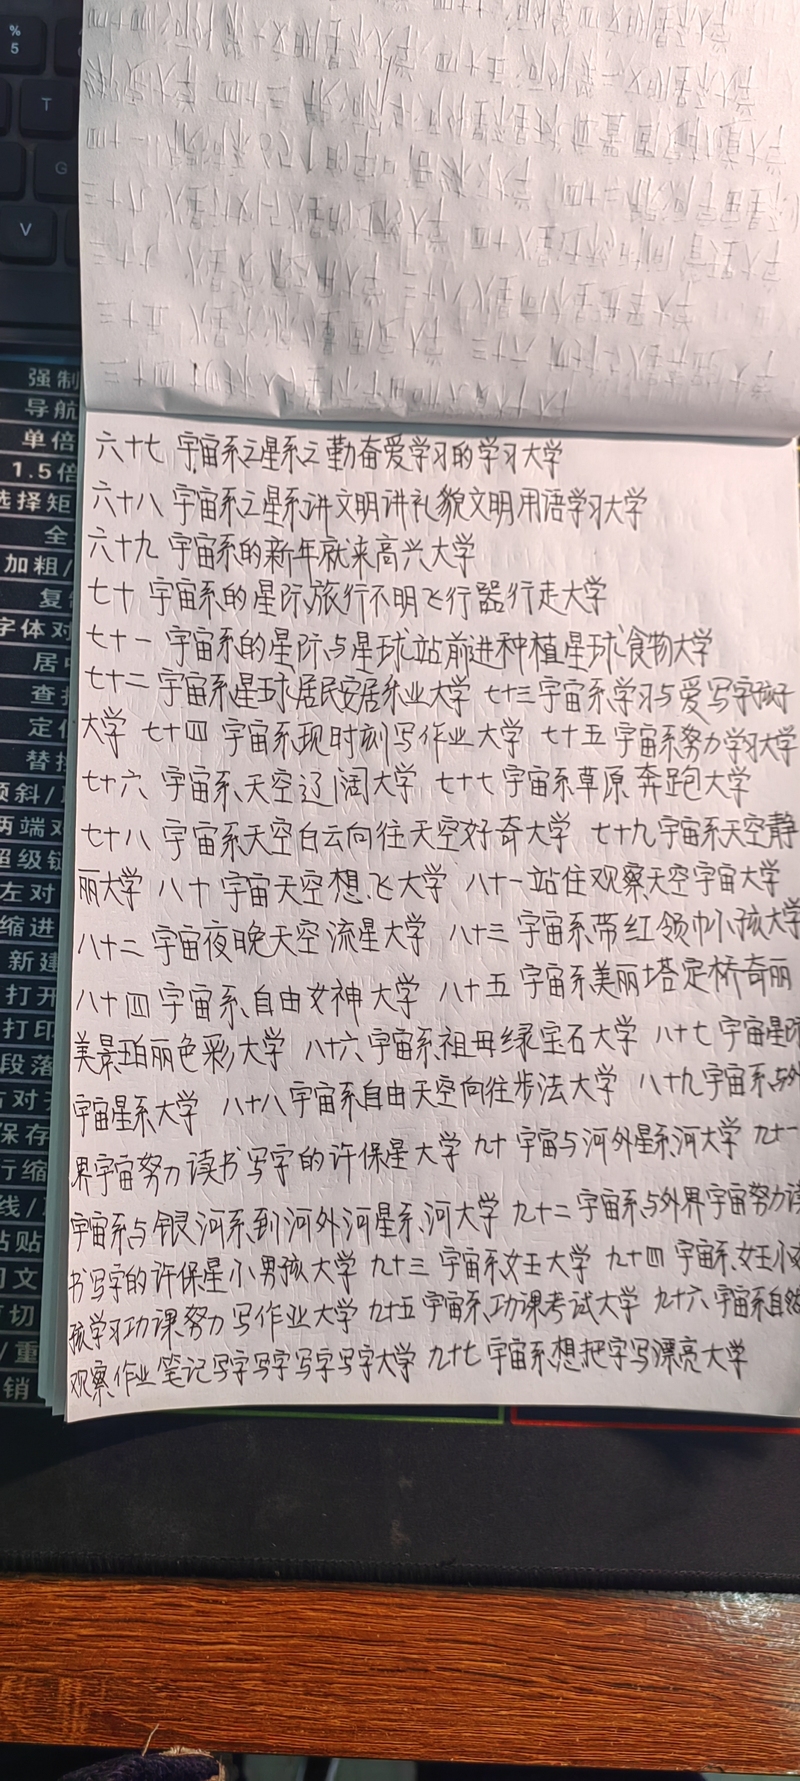 六十七 宇宙系之星系之勤奋爱学习的学习大学
六十八 宇宙系之星系讲文明讲礼貌文明用语学习大学
六十九 宇宙系的新年就来高兴大学
七十 宇宙系的星际旅行不明飞行器行走大学
七十一 宇宙系的星际与星球站前进种植星球食物大学
七十二 宇宙系星球居民安居乐业大学 七十三宇宙系学习与爱写字孩子
大学 七十四 宇宙系现时刻写作业大学 七十五宇宙系努力学习大学
七十六 宇宙系天空辽阔大学 七十七宇宙系草原奔跑大学
七十八 宇宙系天空白云向往天空好奇大学 七十九宇宙系天空静
丽大学 八十宇宙天空想飞大学 八十一站住观察天空宇宙大学
八十二 宇宙夜晚天空流星大学 八十三 宇宙系带红领巾小孩大学
八十四 宇宙系自由女神大学 八十五 宇宙系美丽塔定桥奇丽
美景珀丽色彩大学 八十六宇宙系祖母绿宝石大学 八十七宇宙星际
宇宙星系大学 八十八宇宙系自由天空向往步法大学 八十九宇宙系与外
界宇宙努力读书写字的许保星大学 九十宇宙与河外星系河大学 九十一
宇宙系与银河系到河外河星系河大学 九十二宇宙系与外界宇宙努力读
书写字的许保星小男孩大学 九十三 宇宙系女王大学 九十四 宇宙系女王小女
孩学习功课努力写作业大学 九十五宇宙系功课考试大学 九十六宇宙系自然
观察作业笔记写字写字写字写字大学 九十七宇宙系想把字写漂亮大学
%
5
T
G
V
强制
导航
单倍
1.5倍
选择矩
全
加粗/
复制
字体对
居中
查找
定位
替换
倾斜/
两端对
超级链
左对
缩进
新建
打开
打印
段落
右对齐
保存
行缩
线/
粘贴
剪切
/重
销